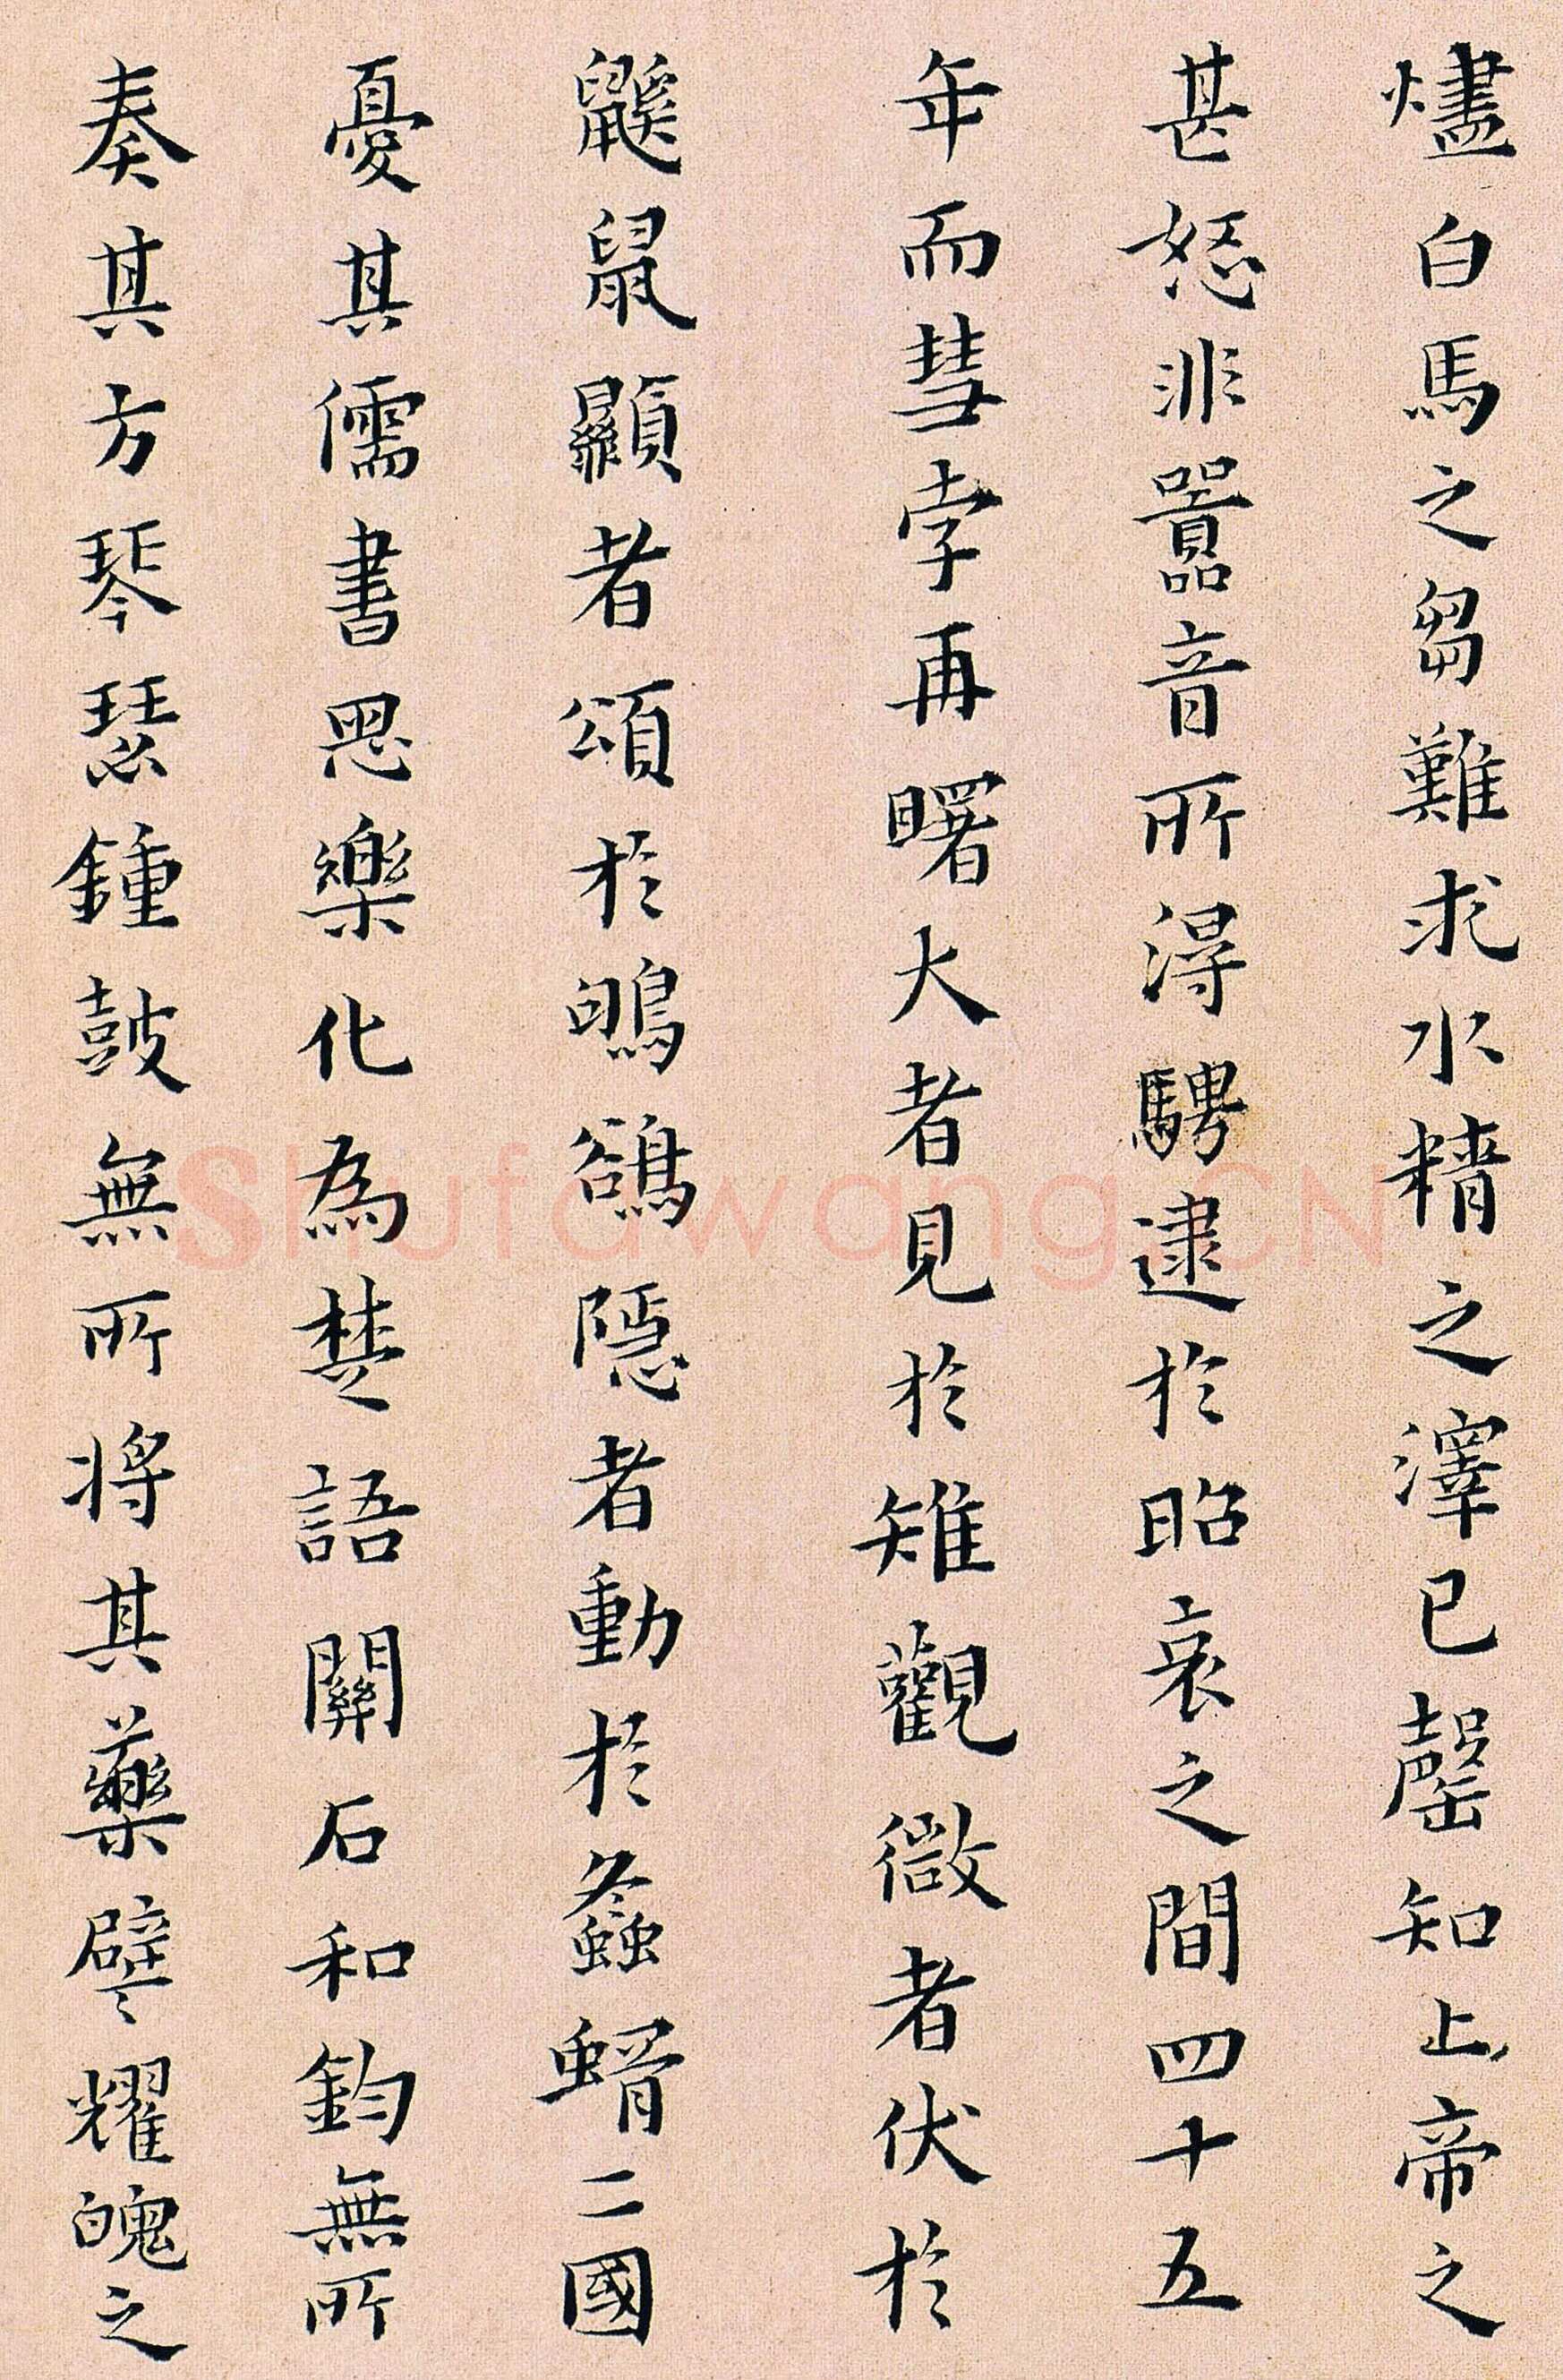 燼白馬之芻難求水精之澤已罄知上帝之
甚怒非囂音所得騁逮於昭哀之間四十五
年而彗孛再曙大者見於雉觀微者伏於
鼷鼠顯者頌於鴝鵒隱者動於螽蝑二國
憂其儒書思樂化為楚語關石和鈞無所
奏其方琴瑟鍾鼓無所將其藥譬耀魄之
Shufawang.CN